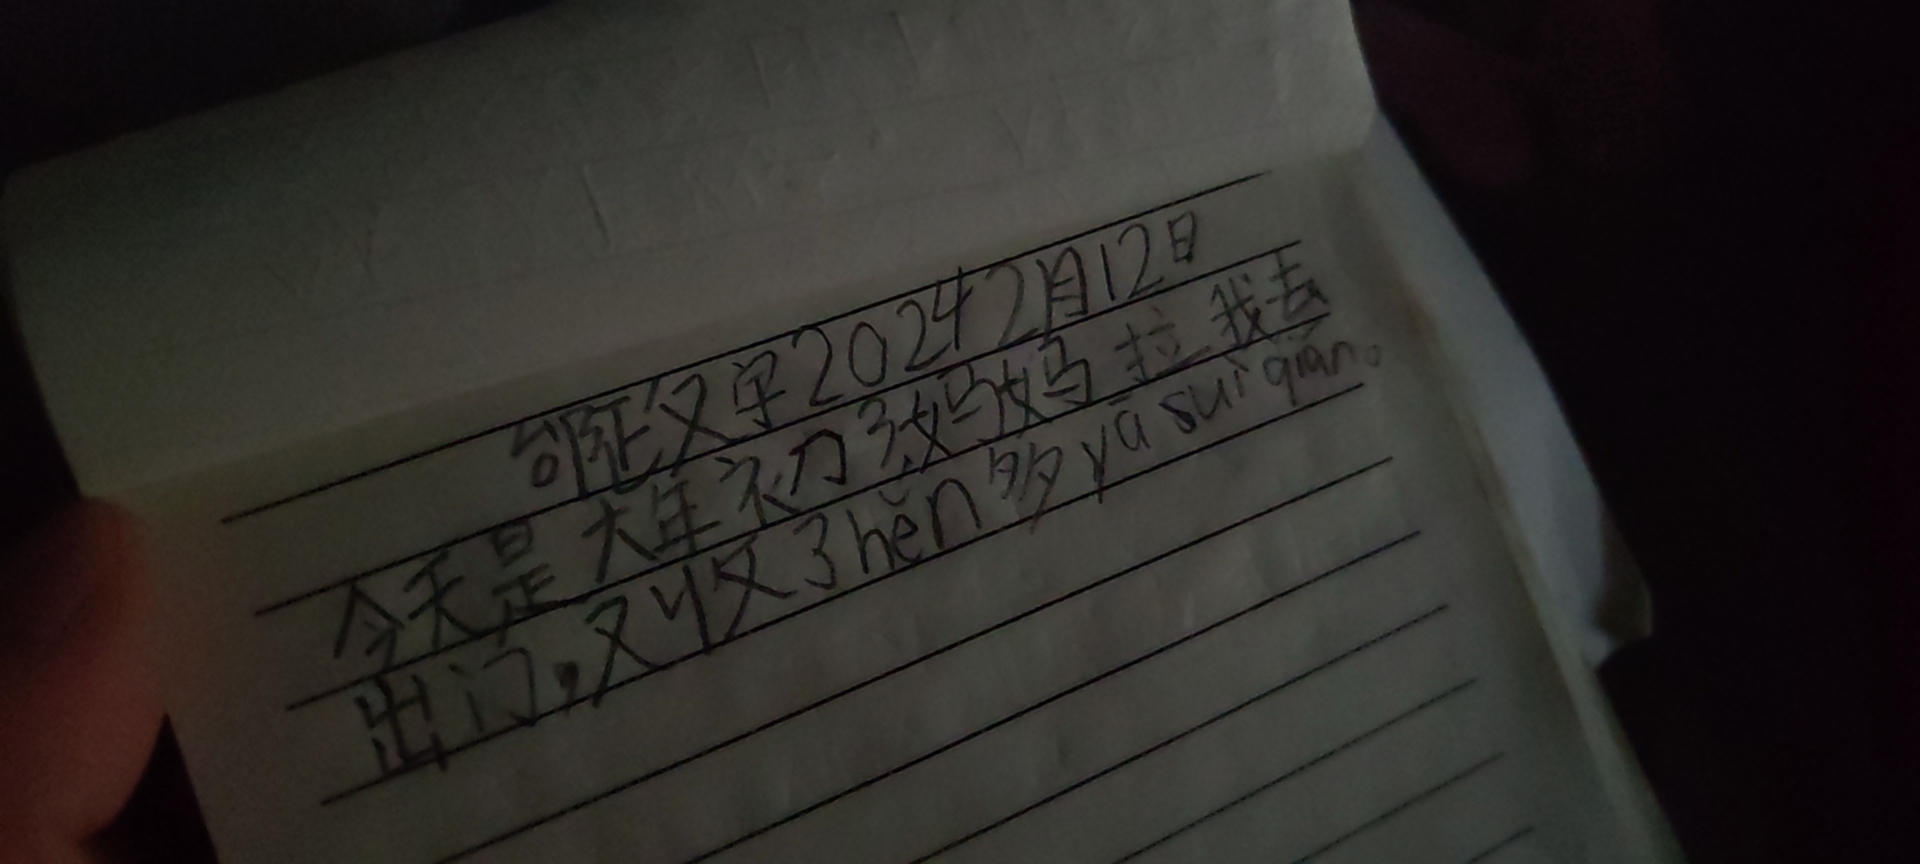 郃阵文字20242月12日
今天是大年初3妈妈拉我去
出门,又收了hěn多yā suì qián。